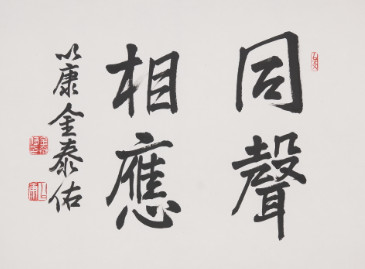 同聲
相應
以康金泰佑